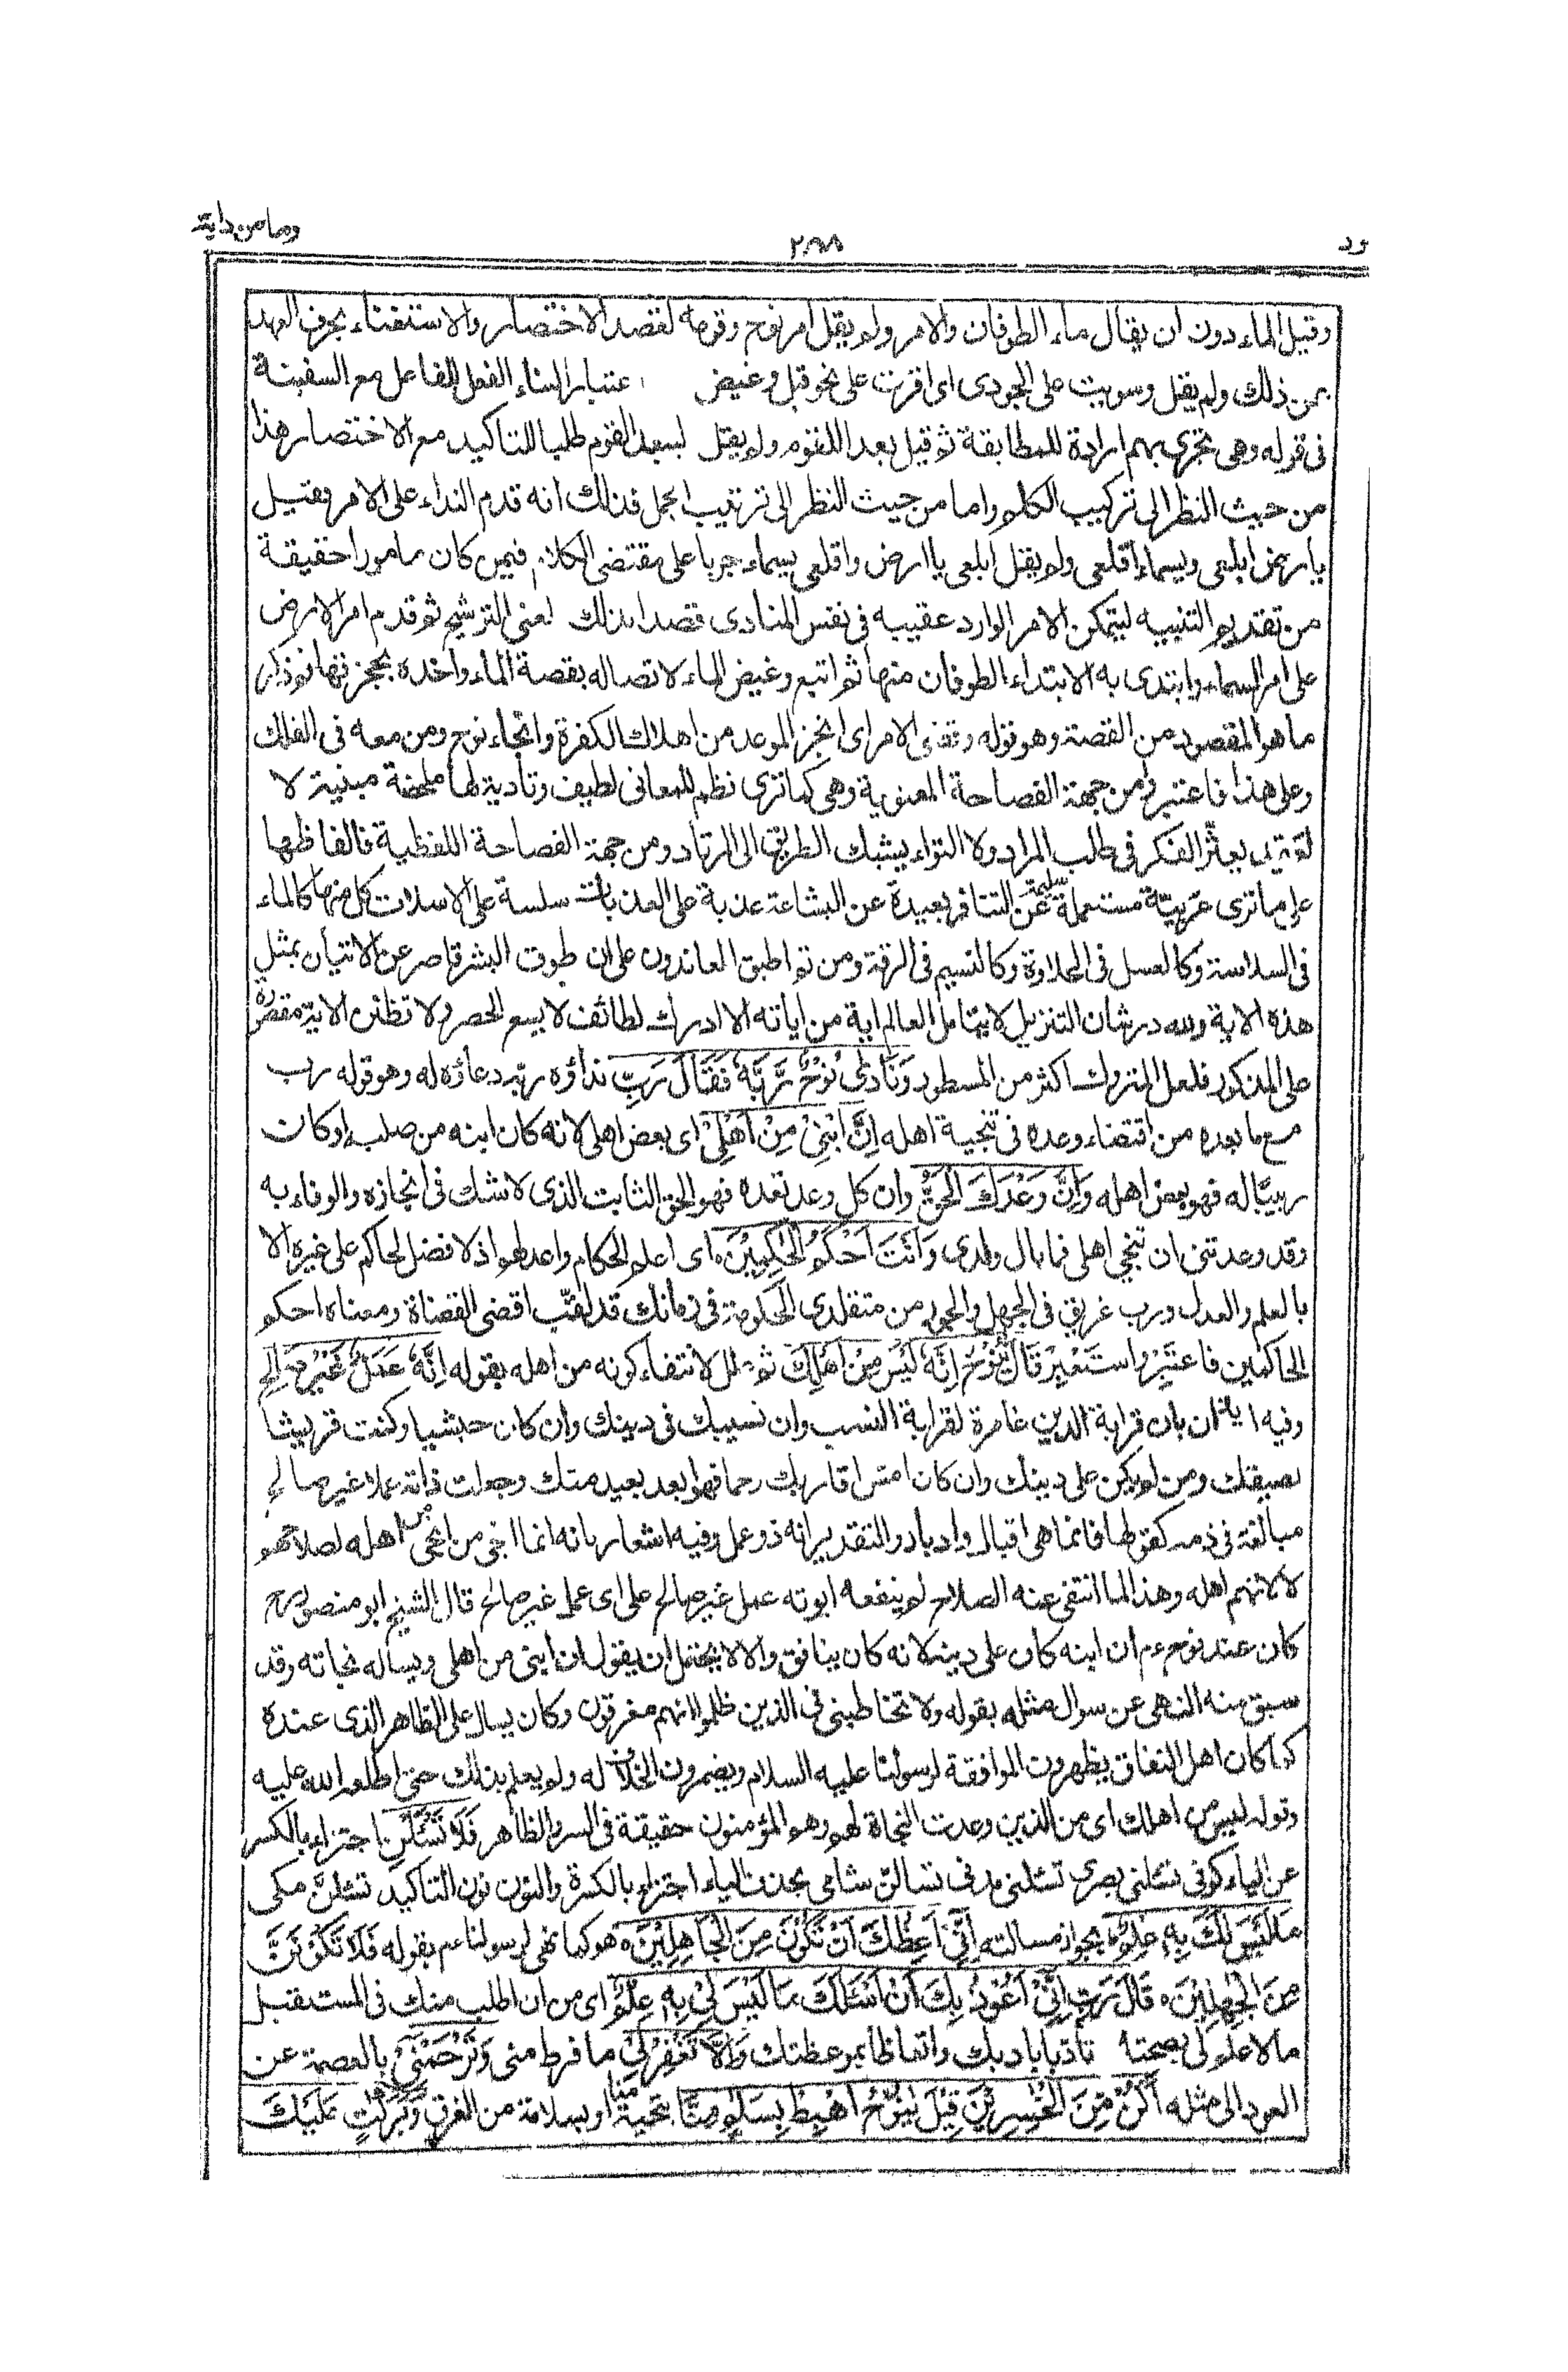 وما من دابة
ود
وقيل الماء دون ان يقال ماء الطوفان والامر ولم يقل امر نوح وقومه لقصد الاختصار والاستغناء بحرف العهد
عن ذلك ولم يقل وسويت على الجودى اى اقرت على نحو قيل وغيض اعتبارا لبناء الفعل للفاعل مع السفينة
فى قوله وهى تجرى بهم ارادة للمطابقة ثم قيل بعدا للقوم ولم يقل ليبعد القوم طلبا للتاكيد مع الاختصار هذا
من حيث النظر الى تركيب الكلم واما من حيث النظر الى ترتيب الجمل فذلك انه قدم النداء على الامر فقيل
يارض ابلعى ويسماء اقلعى ولم يقل ابلعى ياارض واقلعى يسماء جريا على مقتضى الكلام فيمن كان مامورا حقيقة
من تقديم التنبيه ليتمكن الامر الوارد عقيبه فى نفس المنادى قصدا بذلك لمعنى الترشيح ثم قدم امر الارض
على امر السماء وابتدى به لابتداء الطوفان منها ثم اتبع وغيض الماء لاتصاله بقصة الماء واخذه بحجزتها ثم ذكر
ما هو المقصود من القصة وهو قوله وقضى الامر اى انجز الموعد من اهلاك الكفرة وانجاء نوح ومن معه فى الفلك
وعلى هذا فاعتبر ومن جهة الفصاحة المعنوية وهى كما ترى نظم للمعانى لطيف وتادية لها ملخصة مبنية لا
تعقيد يعثر الفكر فى طلب المراد ولا التواء يشبك الطريق الى المرتاد ومن جهة الفصاحة اللفظية فالفاظها
على ما ترى عربية مستعملة سليمة عن التنافر بعيدة عن البشاعة عذبة على العذبات سلسة على الاسلات كل منها كالماء
فى السلاسة وكالعسل فى الحلاوة وكالنسيم فى الرقة ومن ثم اطبق المعاندون على ان طوق البشر قاصر عن الاتيان بمثل
هذه الاية ولله در شان التنزيل لا يتامل العالم اية من اياته الا ادرك لطائف لا يسع الحصر ولا تظنن الاية مقصورة
على المذكور فلعل المتروك اكثر من المسطور وَنَادٰى نُوْحٌ رَّبَّهٗ فَقَالَ رَبِّ نداؤه ربه دعاؤه له وهو قوله رب
مع ما بعده من اقتضاء وعده فى تنجية اهله اِنَّ ابْنِىْ مِنْ اَهْلِىْ اى بعض اهلى لانه كان ابنه من صلبه او كان
ربيبا له فهو بعض اهله وَاِنَّ وَعْدَكَ الْحَقُّ وان كل وعد تعده فهو الحق الثابت الذى لا شك فى انجازه والوفاء به
وقد وعدتنى ان تنجى اهلى فما بال ولدى وَاَنْتَ اَحْكَمُ الْحٰكِمِيْنَ اى اعلم الحكام واعدلهم اذ لا فضل لحاكم على غيره الا
بالعلم والعدل ورب غريق فى الجهل والجور من متقلدى الحكومة فى زمانك قد لقب اقضى القضاة ومعناه احكم
الحاكمين فاعتبر واستعبر قَالَ يٰنُوْحُ اِنَّهٗ لَيْسَ مِنْ اَهْلِكَ ثم علل لانتفاء كونه من اهله بقوله اِنَّهٗ عَمَلٌ غَيْرُ صَالِحٍ
وفيه ايذان بان قرابة الدين غامرة لقرابة النسب وان نسيبك فى دينك وان كان حبشيا وكنت قريشيا
لصيقك ومن لم يكن على دينك وان كان امس اقاربك رحما فهو ابعد بعيد منك وجعلت ذاته عملا غير صالح
مبالغة فى ذمه كقولها فانما هى اقبال وادبار والتقدير انه ذو عمل وفيه اشعار بانه انما انجى من انجى من اهله لصلاحهم
لا لانهم اهله وهذا لما انتفى عنه الصلاح لم ينفعه ابوته عمل غير صالح على اى عمل غير صالح قال الشيخ ابو منصور رح
كان عند نوح عم ان ابنه كان على دينه لانه كان ينافق والا لا يحتمل ان يقول ان ابنى من اهلى ويساله نجاته وقد
سبق منه النهى عن سوال مثله بقوله ولا تخاطبنى فى الذين ظلموا انهم مغرقون وكان يسال على الظاهر الذى عنده
كما كان اهل النفاق يظهرون الموافقة لرسولنا عليه السلام ويضمرون الخلاف له ولم يعلم بذلك حتى اطلعه الله عليه
وقوله ليس من اهلك اى من الذين وعدت النجاة لهم وهم المؤمنون حقيقة فى السر والظاهر فَلَا تَسْئَلْنِ اجتزاء بالكسر
عن الياء كوفى تسئلنى بصرى تسئلنى مدنى تسالن شامى بحذف الياء اجتزاء بالكسرة والنون نون التاكيد تسئلن مكى
مَا لَيْسَ لَكَ بِهٖ عِلْمٌ بجواز مسالته اِنِّىْ اَعِظُكَ اَنْ تَكُوْنَ مِنَ الْجَاهِلِيْنَ هو كما نهى لرسولنا عم بقوله فَلَا تَكُوْنَنَّ
مِنَ الْجٰهِلِيْنَ قَالَ رَبِّ اِنِّىْ اَعُوْذُ بِكَ اَنْ اَسْئَلَكَ مَا لَيْسَ لِىْ بِهٖ عِلْمٌ اى من ان اطلب منك فى المستقبل
ما لا علم لى بصحته تادبا بادبك واتعاظا بموعظتك وَاِلَّا تَغْفِرْ لِىْ ما فرط منى وَتَرْحَمْنِىْ بالعصمة عن
العود الى مثله اَكُنْ مِّنَ الْخٰسِرِيْنَ قِيْلَ يٰنُوْحُ اهْبِطْ بِسَلٰمٍ مِّنَّا بتحية منا او بسلامة من الغرق وَبَرَكٰتٍ عَلَيْكَ